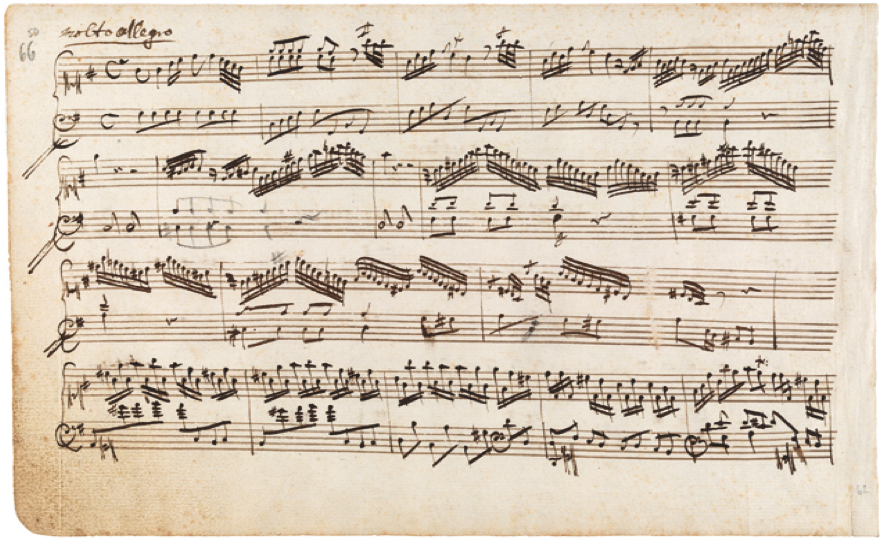 50
66
molto allegro
62